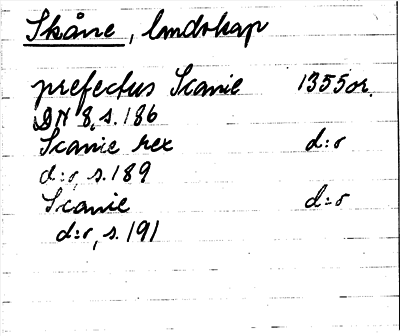 Skåne, landskap
prefectus Scanie 1355 or.
DN 8, s. 186
Scanie rex d:o
d:o, s. 189
Scanie d:o
d:o, s. 191